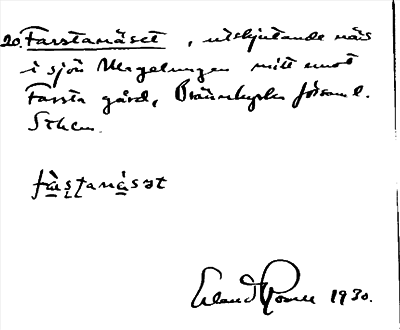 20. Farstanäset, utskjutande näs
i sjön Magelungen mitt emot
Farsta gård, Brännkyrka församl.
Sthlm.
fa̱s̱ṯana̱sət
Erland Rosell 1930.